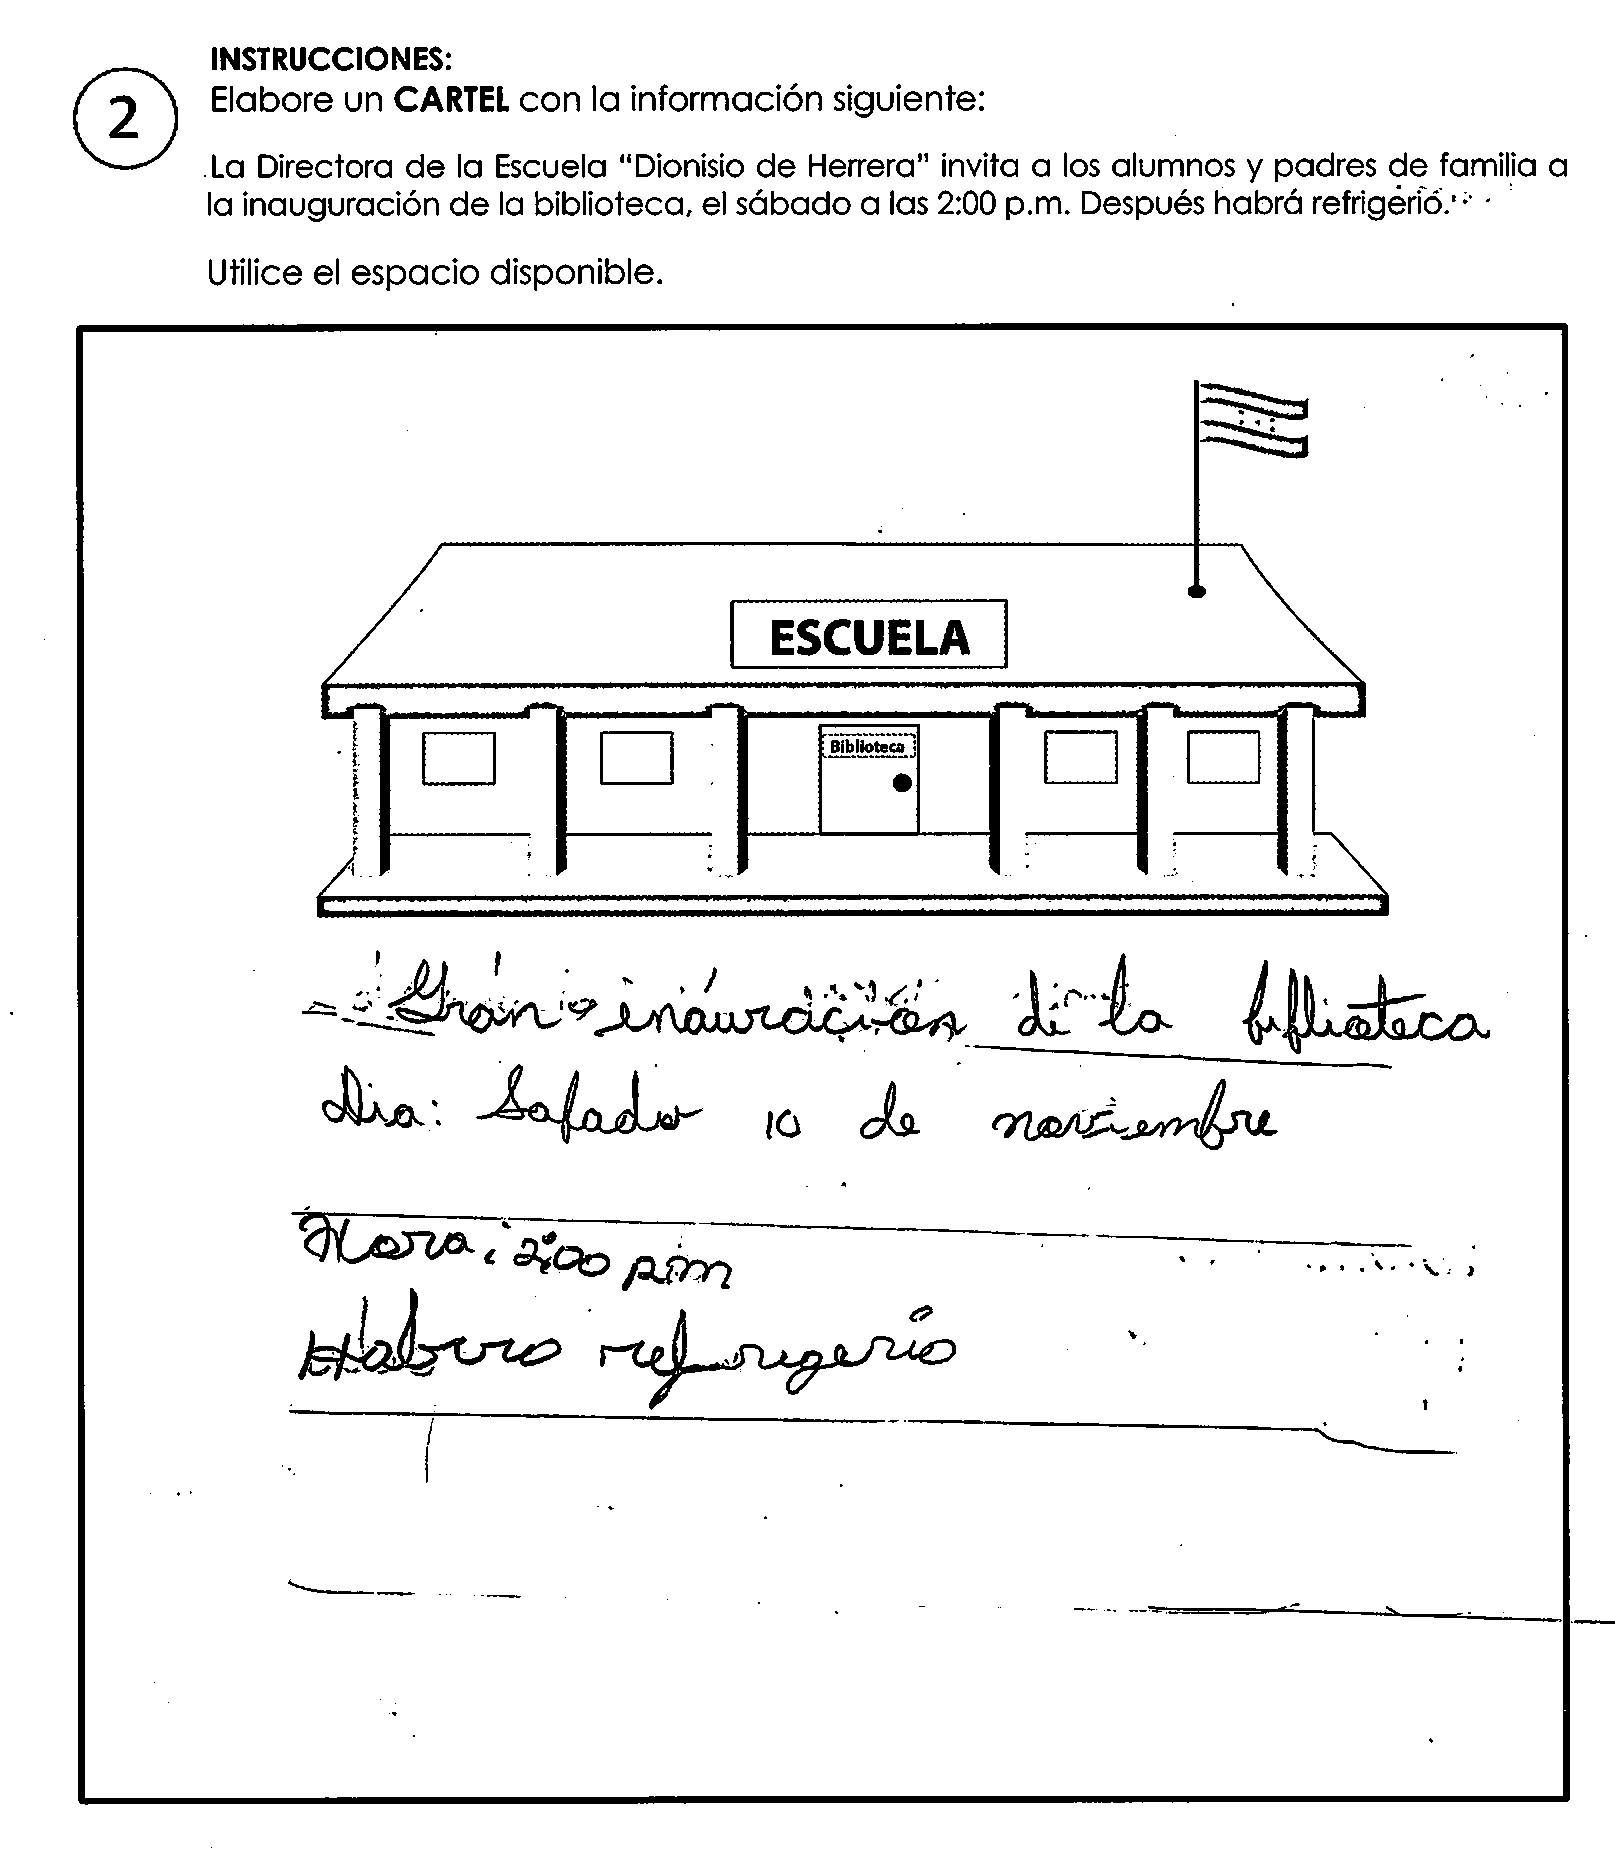 INSTRUCCIONES:
2
Elabore un CARTEL con la información siguiente:
La Directora de la Escuela "Dionisio de Herrera" invita a los alumnos y padres de familia a
la inauguración de la biblioteca, el sábado a las 2:00 p.m. Después habrá refrigerio.
Utilice el espacio disponible.
ESCUELA
Biblioteca
Gran inauracion de la biblioteca
Dia: Sabado 10 de noviembre
Hora: 2:00 p.m
Habrra refrigerio